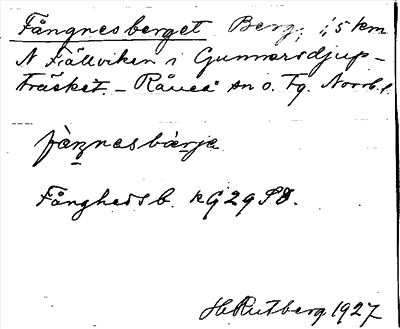 Fångnesberget Berg, 1,5 km
N Fjällviken i Gunnarsdjup-
träsket. – Råneå sn o. Tg. Norrb. l.
fàŋnasbàrja
Fånghedsb. kG29SO.
H Rutberg 1927